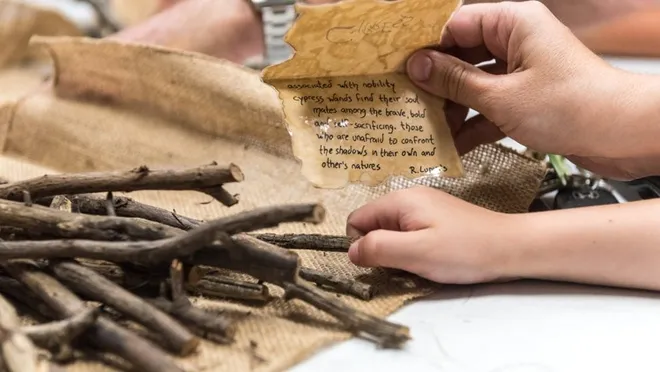 associated with nobility
cypress wands find their soul
mates among the brave, bold
and self-sacrificing. those
who are unafraid to confront
the shadows in their own and
other's natures
R.